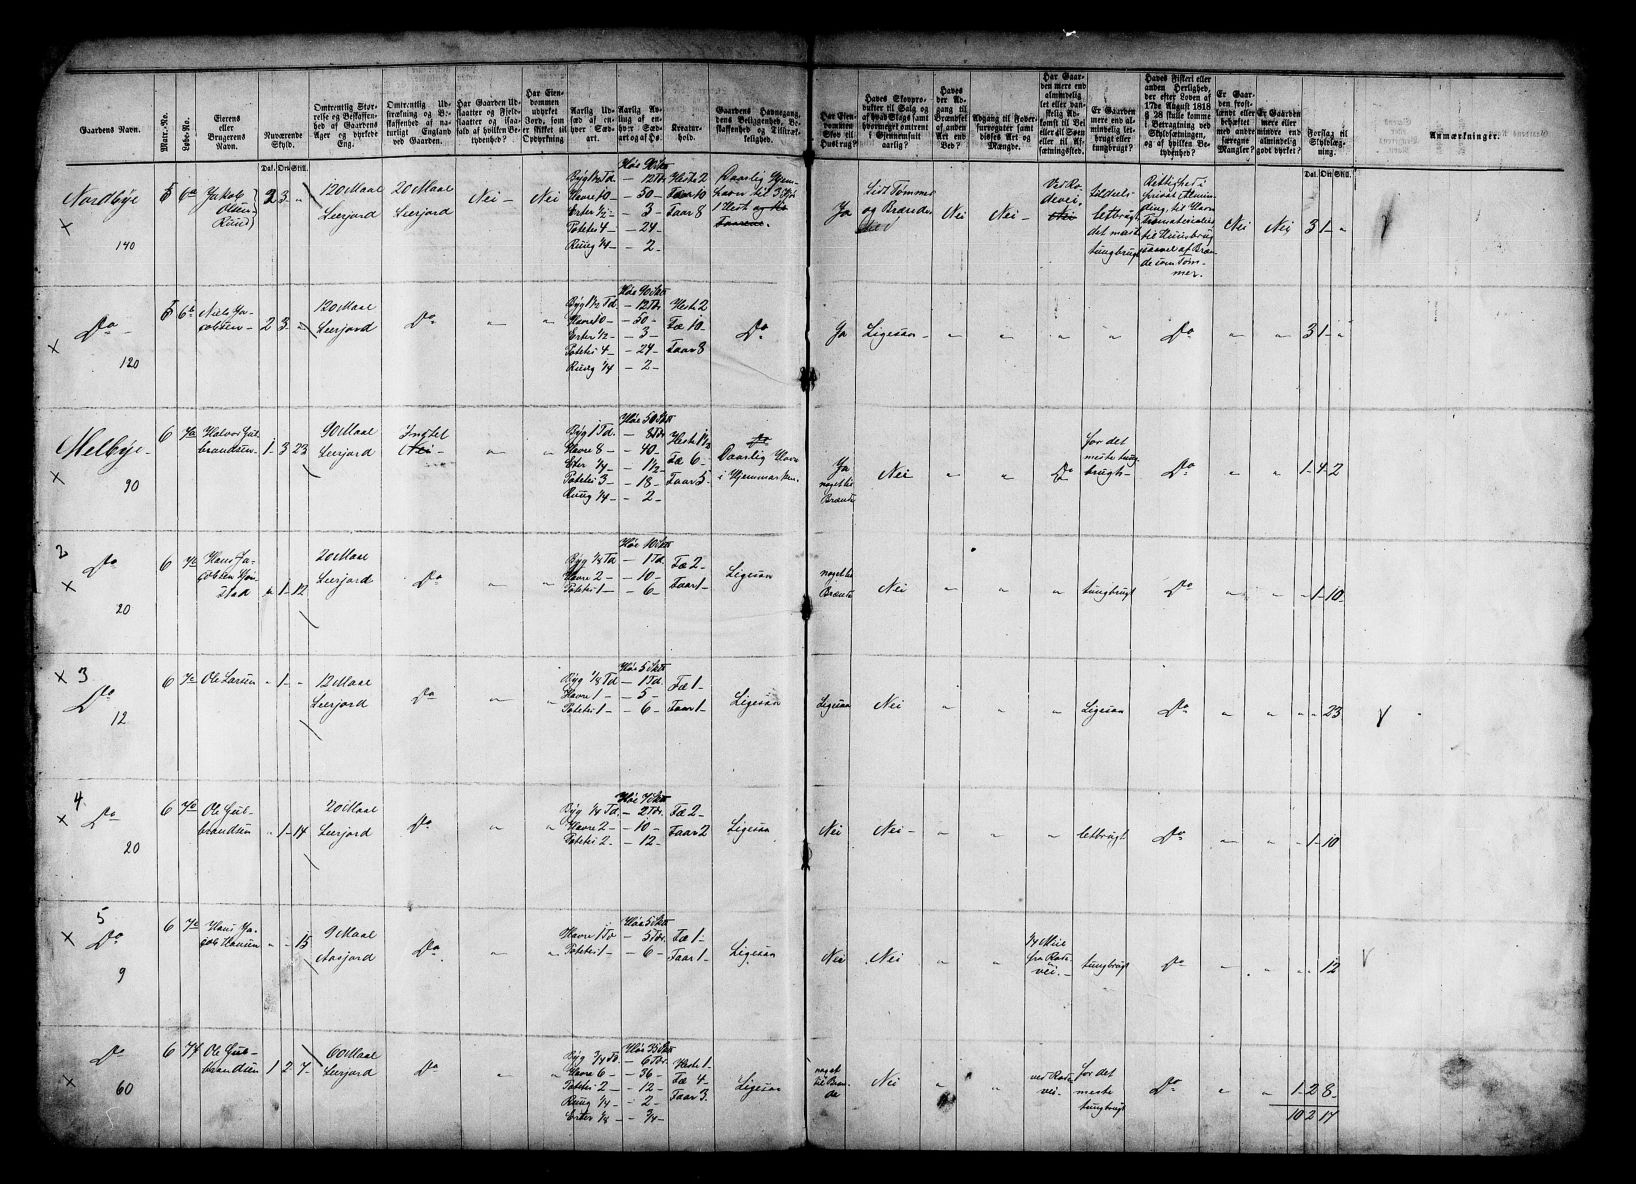 Gaardens Navn.
Matr.-No.
Løbe-No.
Eierens eller Brugerens Navn.
Nuværende Skyld.
Dal. Ort Skill.
Omtrentlig Størrelse og Beskaffenhed af Gaardens Ager og dyrkede Eng.
Omtrentlig Udstrækning og Beskaffenhed af naturligt England ved Gaarden.
Har Gaarden Udslaatter og Fjeldslaatter og Isaafald af hvilken Betydenhed?
Har Eiendommen udyrket Jord, som er skikket til Opdyrkning
Aarlig Udsæd af enhver Sædart.
Aarlig Avling af enhver Sædart og af Hø.
Kreaturhold.
Gaardens Havnegang, dens Beliggenhed, Beskaffenhed og Tilstrækkelighed.
Har Eiendommen Skov til Husbrug?
Haves Skovprodukter til Salg og af hvad Slags samt hvormeget omtrent i Gjennemsnit aarlig?
Haves der Adgang til Brændsel af anden Art end Ved?
Adgang til Fodersurrogater samt disses Art og Mængde.
Har Gaarden mere end almindelig let eller vanskelig Adkomst til Vei eller til Søen eller til Afsætningssted.
Er Gaarden mere end almindelig letbrugt eller tungbrugt?
Haves Fiskeri eller anden Herlighed, der efter Loven af 17de August 1818 § 28 skulle komme i Betragtning ved Skyldsætningen, og af hvilken Betydenhed?
Er Gaarden frostlændt eller behæftet med andre særegne Mangler?
Er Gaarden mere eller mindre end almindelig godt dyrket?
Forslag til Skyldlægning.
Dal. Ort Skill.
Anmærkninger.
Nordbye 5 6a Jakob Olsen Ruud 2 3 "
140
120 Maal Leerjord
20 Maal Leerjord
Nei - Nei
Høe 90 Skd
Byg 1½ Td. - 12 Tdr
Havre 10 - 50 -
Erter ½ - 3
Potetes 4 - 24 -
Ruug ¼ - 2 -
Heste 2
Faar 8
Ja
Lidt Tømmer og Brændeved
Nei Nei -
Ved Rodevei,
tildeels letbrugt det meste tungbrugt
Nei Nei 3 1 - "
Do 5 6b Niels Jacobsen 2 3 -
120
120 Maal Leerjord
Do " "
Høe 90 Skd
Byg 1½ Td - 12 Tdr.
Havre 10 - 50 -
Erter ½ - 3
Potetes 4 - 24
Ruug ¼ - 2 -
Heste 2
Fæ 10 -
Faar 8
Do
Ja Ligesaa - " " " " Do " " 3 1 - "
Melbye 6 7a Halvor Gulbrandsen 1 3 23
90
90 Maal Leerjord
Nei - " "
Høe 50 Skd
Byg 1 Td. - 8 Tdr.
Havre 8 - 40 -
Erter ¼ - 1½ -
Potetes 3 - 18 -
Ruug ¼ - 2 -
Heste 1½
Fæ 6 -
Faar 5 -
Daarlig Havn i Hjemmarken.
Ja noget til Brænde
Nei " " Do
for det meste tungbrugt -
Do " " 1 - 4 - 2
2
Do 6 7b Hans Jacobsen " 1 - 12
20
20 Maal Leerjord
Do " "
Høe 10 Skd
Byg ⅛ Td - 1 Td.
Havre 2 - 10 -
Potetes 1 - 6 -
Fæ 2 -
Faar 1 -
Ligesaa
noget til Brænde
Nei " " " tungbrugt Do " " " 1 - 10
3
Do 6 7c Ole Larsen " 1 - "
12
12 Maal Leerjord
Do " "
Høe 5 Skd
Byg ⅛ Td - 1 Td.
Havre 1 - 5 -
Potetes 1 - 6 -
Fæ 1 -
Faar 1 -
Ligesaa
Ligesaa Nei " " " Ligesaa Do " " " " 23
4
Do 6 7d Ole Gulbrandsen " 1 - 14
20
20 Maal Leerjord
Do " "
Høe 7 Skd
Byg ¼ Td. - 2 Tdr.
Havre 2 - 10 -
Potetes 2 - 12 -
Fæ 2 -
Faar 2
Ligesaa
Nei Nei - " " " letbrugt Do " " " 1 - 10
5
Do 6 7e Hans Jacob Hansen " - 15
9
9 Maal Aasjord
Do " "
Høe 5 Skd
Havre 1 Td - 5 Tdr.
Potetes 1 - 6 -
Fæ 1 -
Faar 1 -
Ligesaa
Nei Nei " "
¼ Miil fra Rodevei. -
tungbrugt Do " " " " 12
Do 6 7f Ole Gulbrandsen 1 2 7 -
60
60 Maal Leerjord
Do " "
Høe 35 Skd
Byg ¾ Td. - 6 Tdr.
Havre 6 - 36 -
Potetes 2 - 12 -
Ruug ¼ - 2
Erter ⅛ - ¾ -
Heste 1 -
Fæ 4 -
Faar 3.
Ligesaa
noget til Brænde
Nei " "
ved Rodevei. -
for det meste tungbrugt
Do " " 1 - 2 8 -
10 2 17